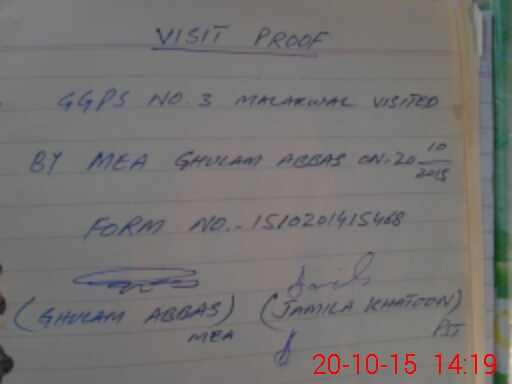 VISIT PROOF
GGPS NO. 3 MALAKWAL VISITED
BY MEA GHULAM ABBAS ON. 20 10/2015
FORM NO.- 1510201415468
(GHULAM ABBAS) (JAMILA KHATOON)
MEA PST
20-10-15 14:19